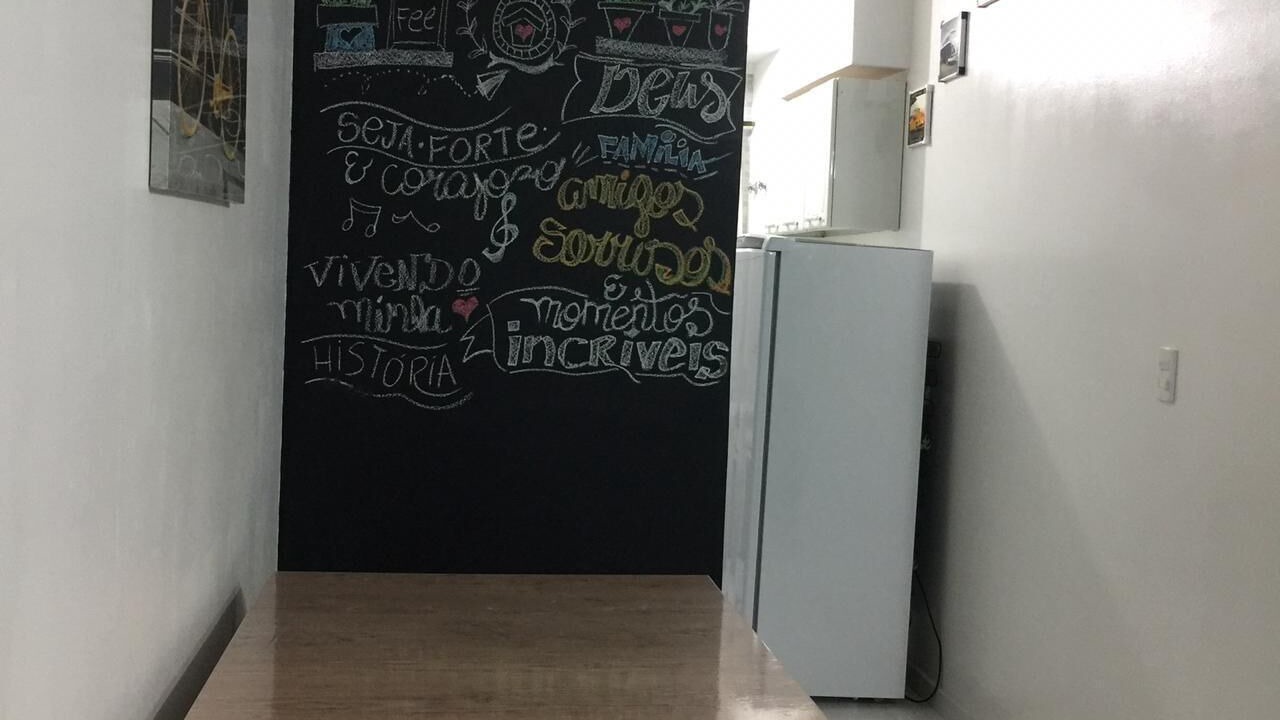 Fee
SEJA·FORTE·
& corajoso
VIVENDO
minha
HISTÓRIA
Deus
FAMÍLIA
amigos
Sorrisos
&
momentos
incríveis